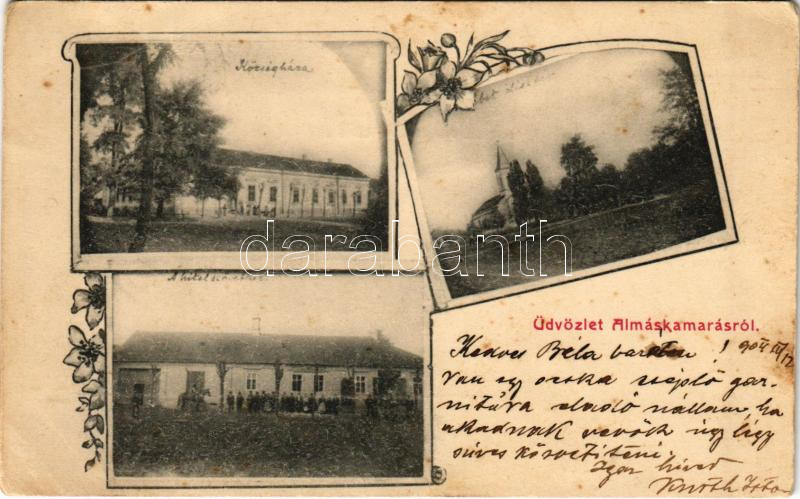 Községháza
A hitelszövetkezet
darabanth
Üdvözlet Almáskamarásról.
Kedves Béla barátom!
Van egy ocska cséplő gar-
nitúra eladó nállam, ha
akadnak vevők úgy légy
szives közvetíteni
Igaz híved